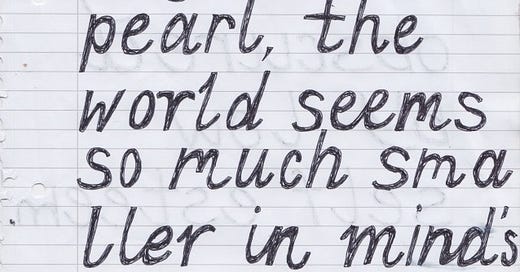 pearl, the
world seems
so much sma
ller in mind's